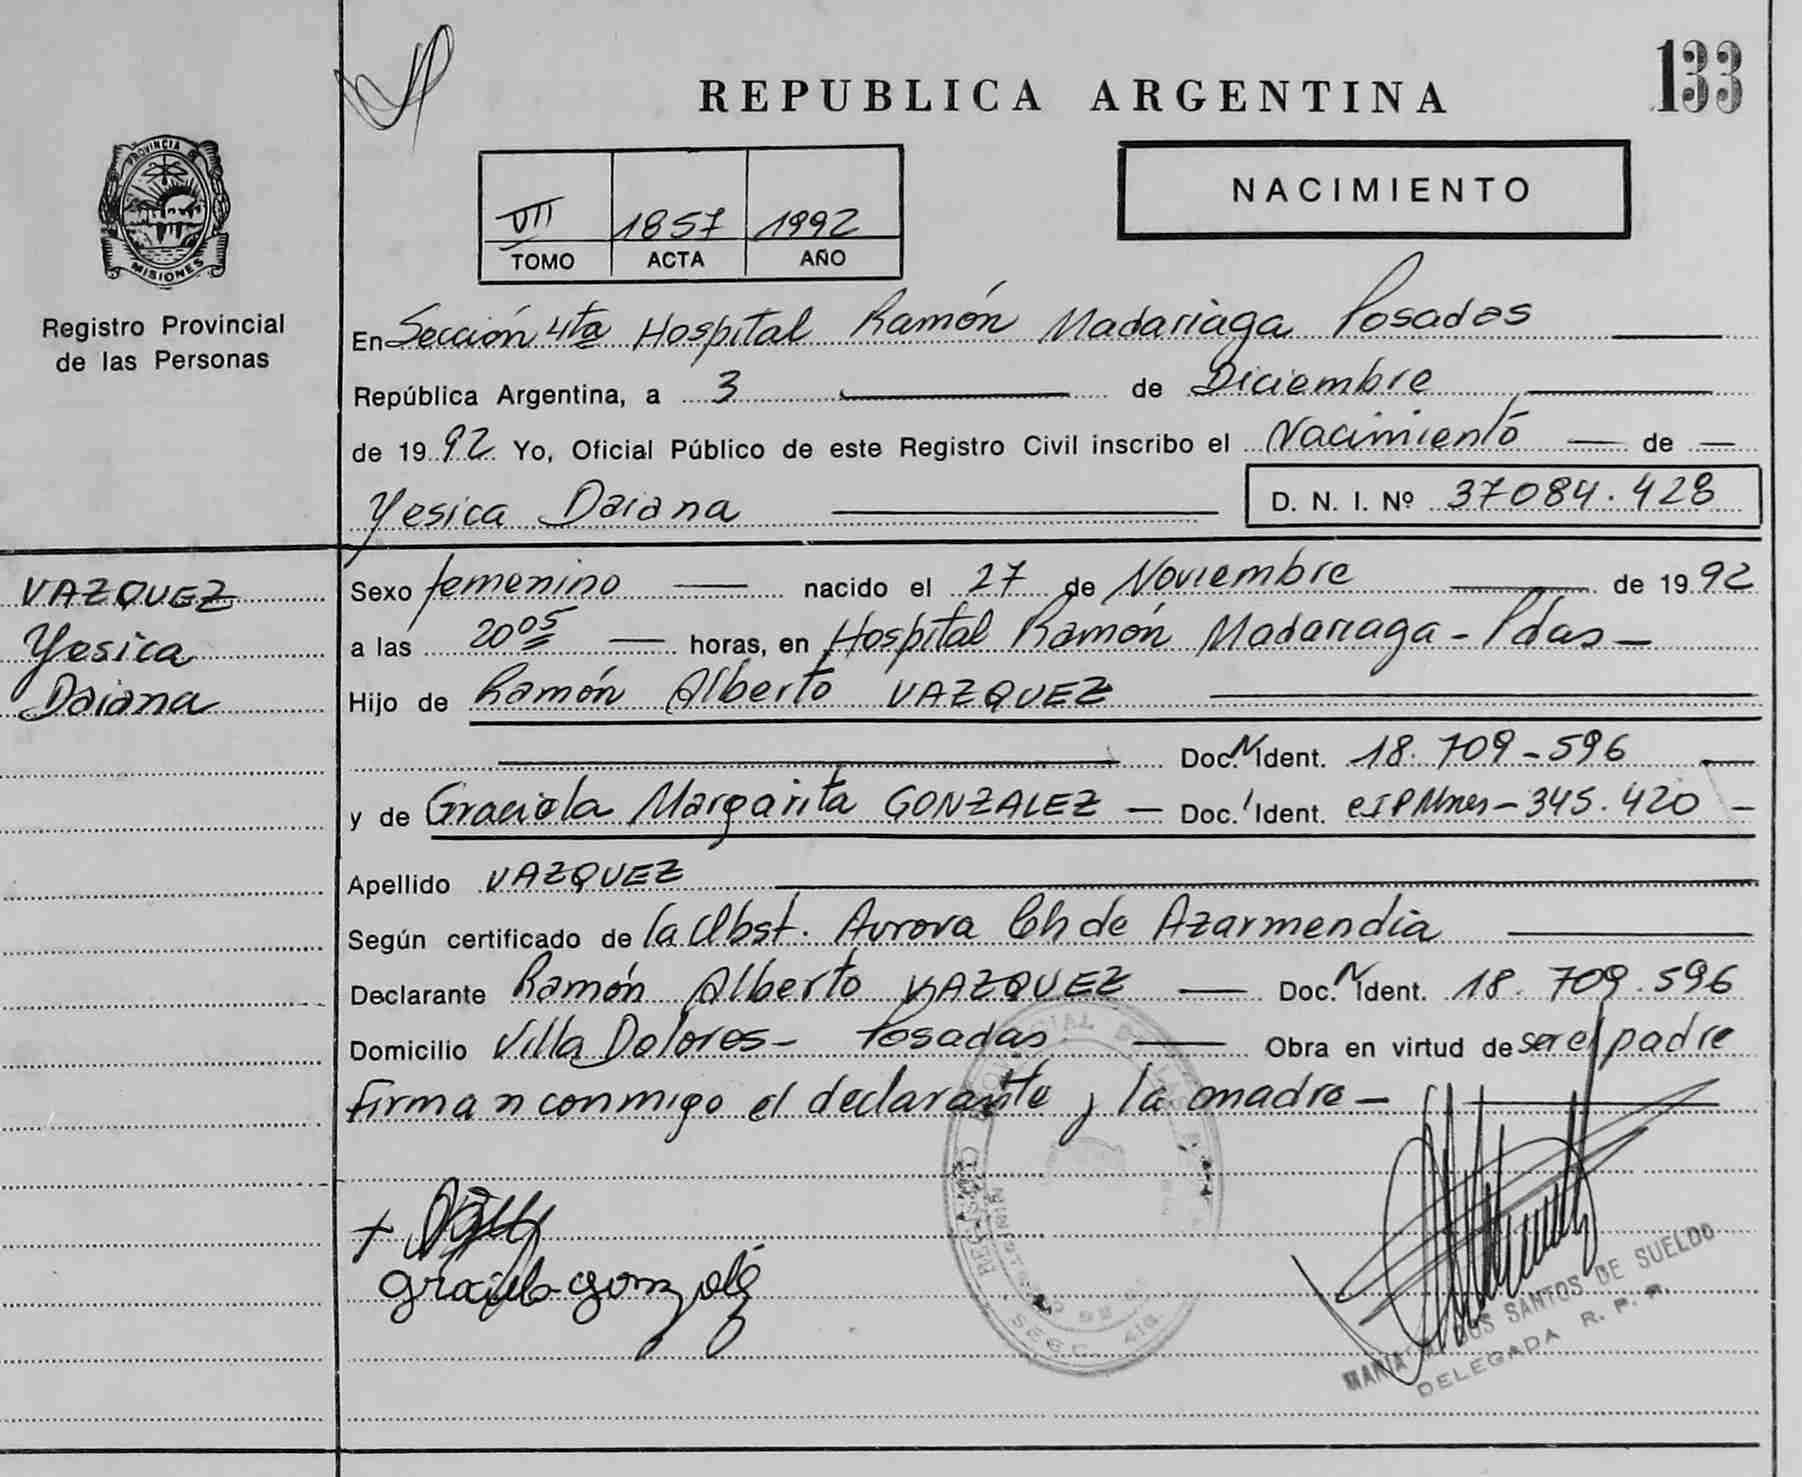 REPUBLICA ARGENTINA
133
PROVINCIA DE
MISIONES
Registro Provincial
de las Personas
VII 1857 1992
TOMO ACTA AÑO
NACIMIENTO
En Sección 4ta Hospital Ramón Madariaga Posadas
República Argentina, a 3 de Diciembre
de 1992 Yo, Oficial Público de este Registro Civil inscribo el Nacimiento de
Yesica Daiana D. N. I. Nº 37084.428
VAZQUEZ
Yesica
Daiana
Sexo femenino nacido el 27 de Noviembre de 1992
a las 20 05 horas, en Hospital Ramón Madariaga - Pdas -
Hijo de Ramón Alberto VAZQUEZ
Doc. N Ident. 18.709-596
y de Graciela Margarita GONZALEZ - Doc. Ident. 345.420 -
Apellido VAZQUEZ
Según certificado de la Obst. Aurora Ch de Azarmendia
Declarante Ramón Alberto VAZQUEZ - Doc. N Ident. 18.709.596
Domicilio Villa Dolores - Posadas - Obra en virtud de ser el padre
Firman conmigo el declarante y la madre -
Graciela Gonzalez
REGISTRO PROVINCIAL DE LAS
MINISTERIO DE
SECC. 4ta.
MARIA DOS SANTOS DE SUELDO
DELEGADA R. P. P.